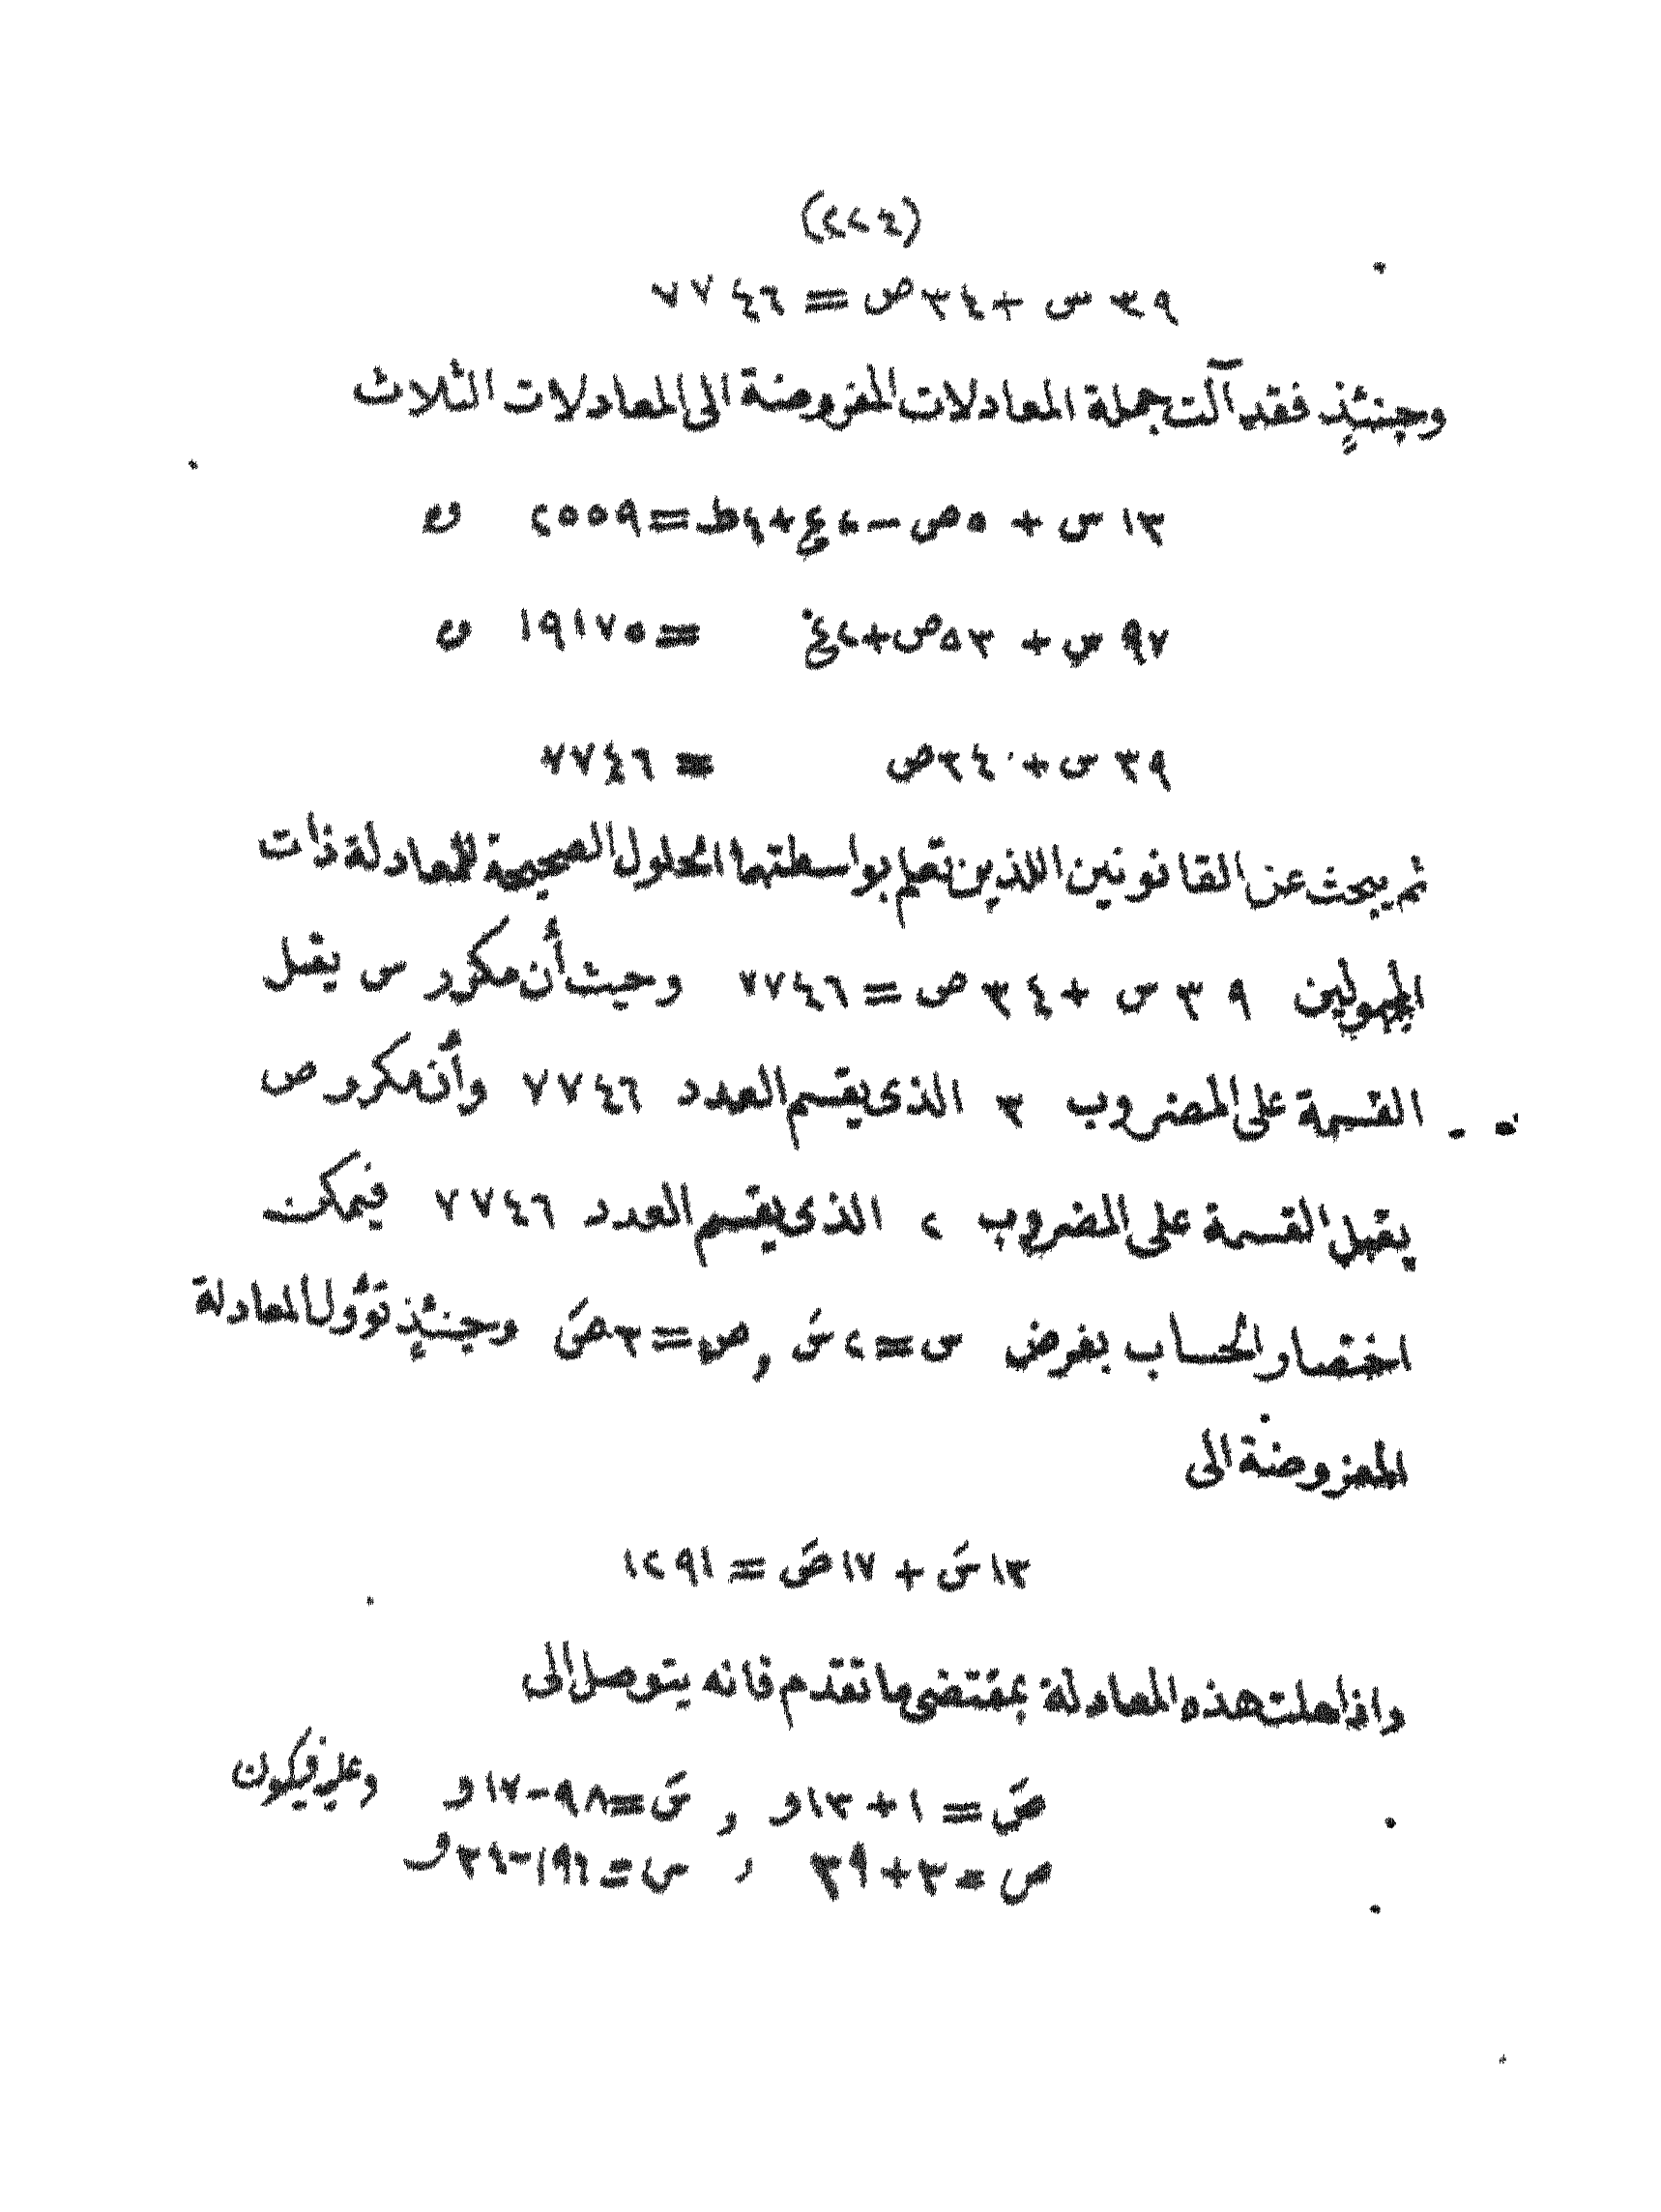 (٤٢٢)
٣٩ س + ٣٤ ص = ٧٧٤٦
وحينئذٍ فقد آلت جملة المعادلات المفروضة الى المعادلات الثلاث
١٣ س + ٥ ص − ٢ ع + ٤ ط = ٢٥٥٩ و
٩٧ س + ٥٣ ص + ٢ ع = ١٩١٧٥ و
٣٩ س + ٣٤ ص = ٧٧٤٦
ثم يبحث عن القانونين اللذين تعلم بواسطتهما الحلول الصحيحة للمعادلة ذات
المجهولين ٣٩ س + ٣٤ ص = ٧٧٤٦ وحيث أن مكرر س يقبل
القسمة على المضروب ٣ الذى يقسم العدد ٧٧٤٦ وأن مكرر ص
يقبل القسمة على المضروب ٢ الذى يقسم العدد ٧٧٤٦ فيمكن
اختصار الحساب بفرض س = ٢ سَ و ص = ٣ صَ وحينئذٍ تؤول المعادلة
المفروضة الى
١٣ سَ + ١٧ صَ = ١٢٩١
واذا حلت هذه المعادلة بمقتضى ما تقدم فانه يتوصل الى
صَ = ١ + ١٣ و , سَ = ٩٨ − ١٧ و وعليه فيكون
ص = ٣ + ٣٩ , س = ١٩٦ − ٣٤ و